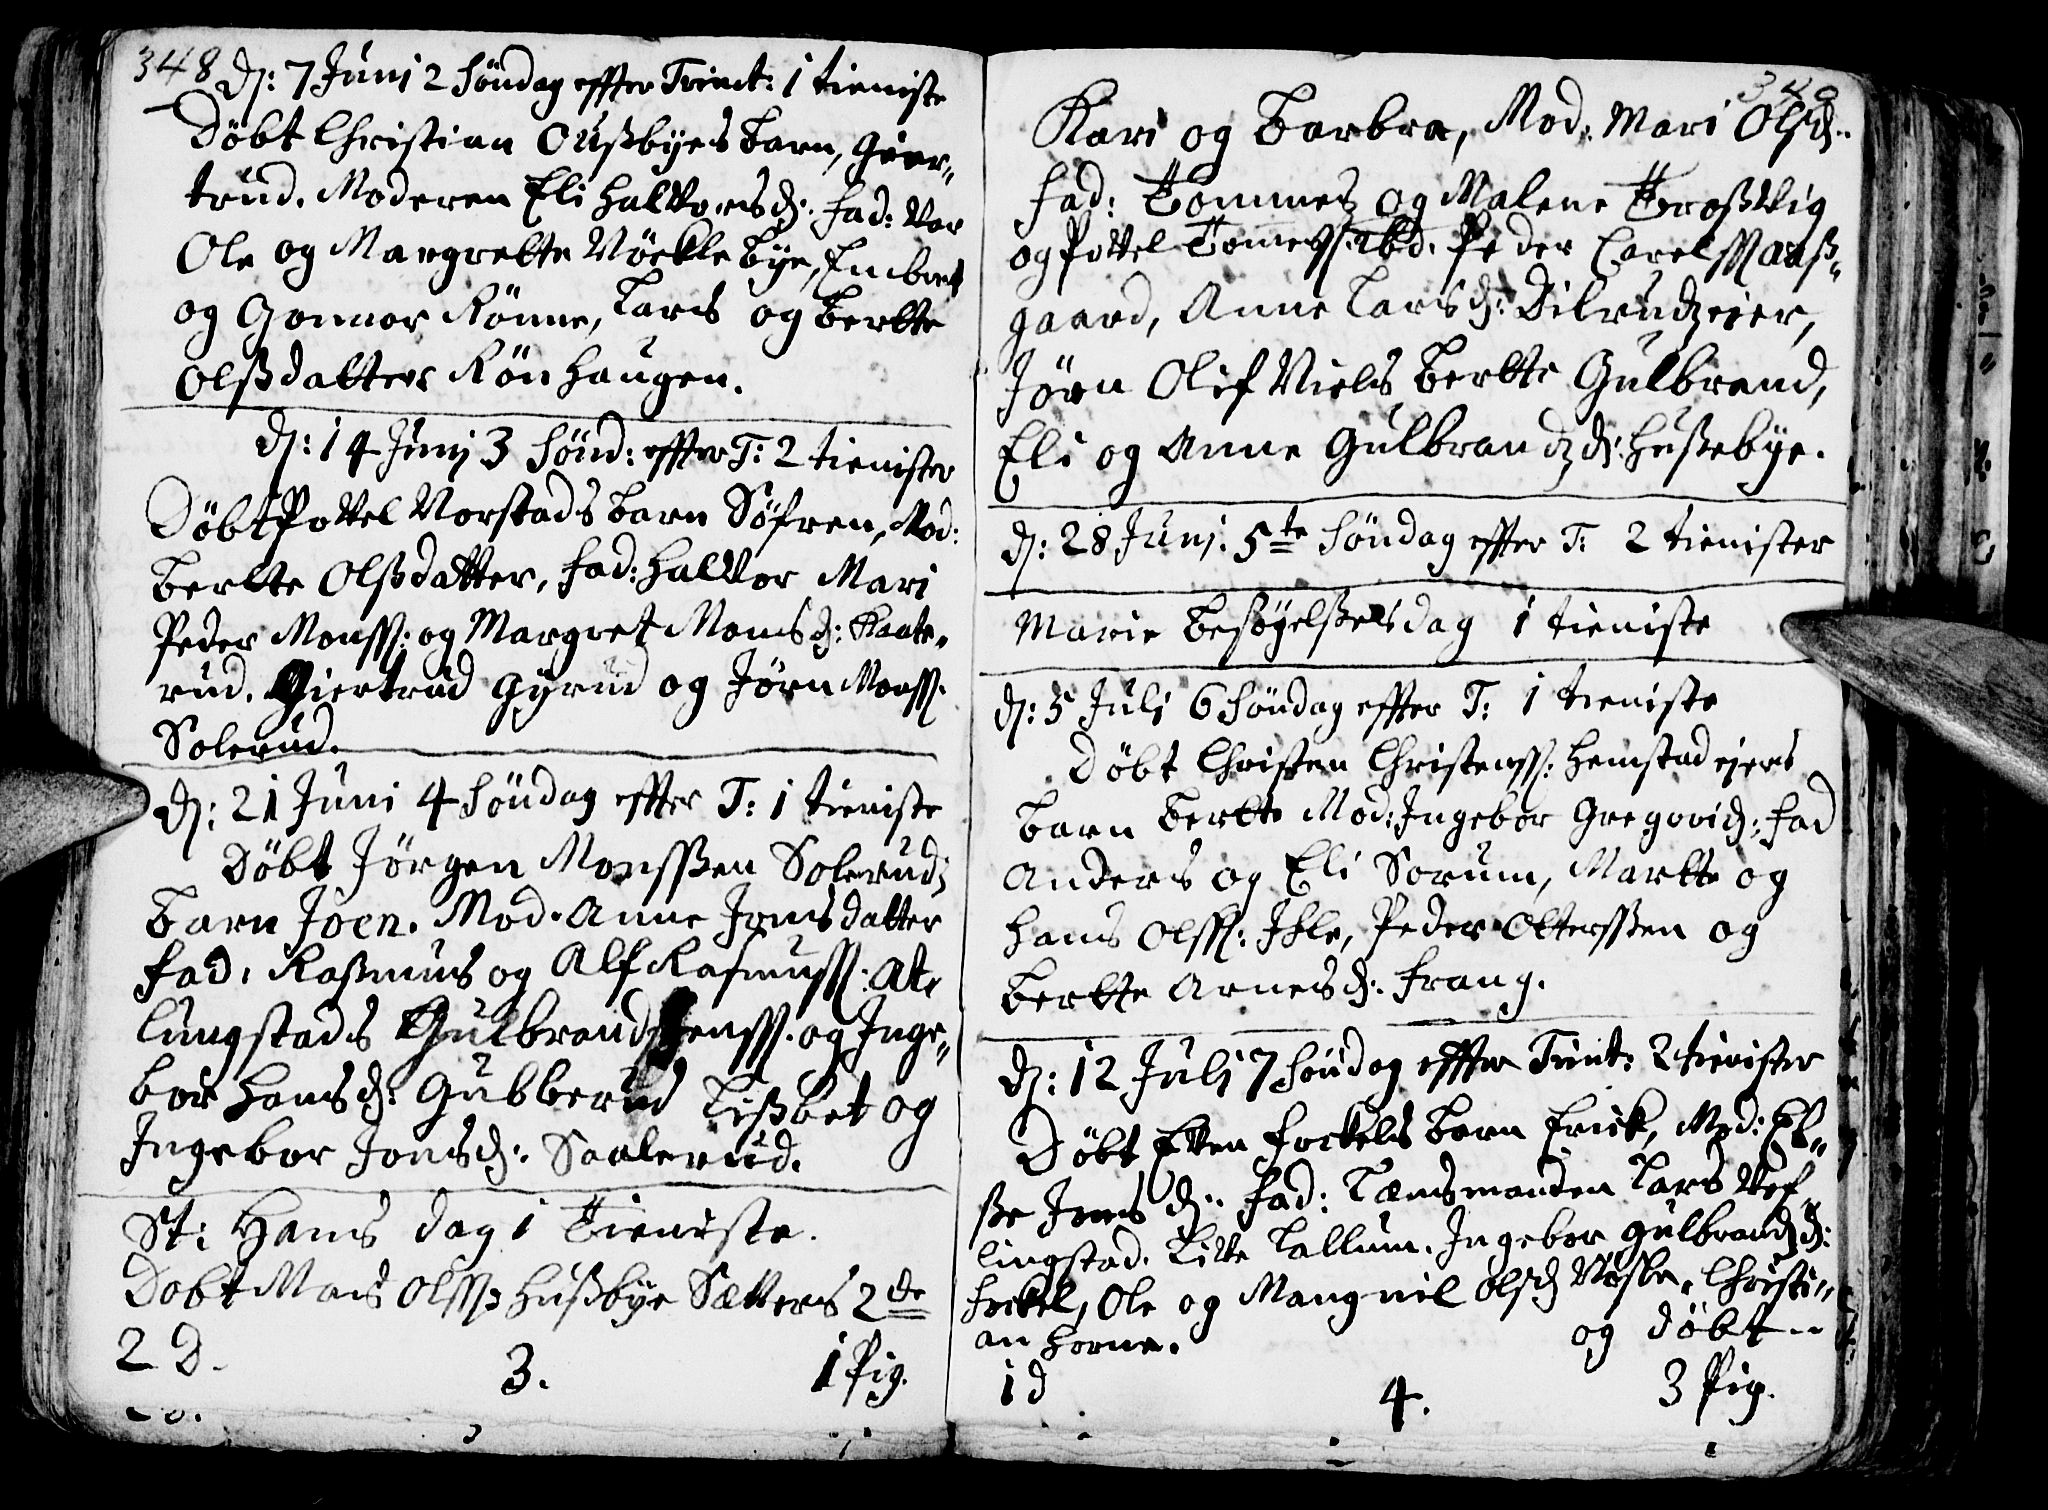 348
d: 7 Junj 2 Söndag effter Trinit: 1 tieniste
Döbt Christian Oußbyes barn, Gier-
trud. Moderen Eli Halvorsd: Fad: Vor
Ole og Margrette Nöckleby, Embret
og Gonnor Rönne, Lars og Bertte
Olßdatter Rönhaugen.
d: 14 Junj 3 Sönd: effter T: 2 tienister
Döbt Povel Norstads barn Söfren, Mod:
Bertte Olßdatter, Fad: Halvor Mari
Peder Monss: og Margret Monsd:
rud. Giertrud Gyrud og Jörn Monss.
Solerud.
d: 21 Juni 4 Söndag effter T: 1 tieniste
Döbt Jörgen Monssßen Solerudz
barn Joen. Mod. Anne Jonsdatter
Fad: Raßmus og Alf Rasmusss: At-
lungstads Gulbrand Jensss. og Inge-
bor Hansd: Gubberud Lißbet og
Ingebor Jonsd: Saalerud.
St: Hans dag 1 Tieniste.
Döbt Mons Olsss: Hußbye Sætters 2de
2 D. 3. 1 Pig.
349
Kari og Barbra, Mod: Mari Olsd:
Fad: Tommes og Malene Troßvig
og Povel Tomess. ibd. Peder Carelss Aaß-
gaard, Anne Larsd: Dilrudzeier,
Jörn Olif Niels, Bertte Gulbrand,
Eli og Anne Gulbrandzd: Hußebye.
d: 28 Junj. 5te Söndag effter T: 2 tienister
Marie Besögelßesdag 1 tieniste
d: 5 Julj 6 Söndag effter T: 1 tieniste
Döbt Christen Christensss: Hemstadejers
barn Bertte Mod: Ingebor Gregorid: Fad
Anders og Eli Sorum, Martte og
Hans Olsss: Ihle, Peder Ottersßen og
Bertte Arnesd: Frang.
d: 12 Julj 7 Söndag effter Trinit: 2 tienister
Döbt Even Fockels barn Erick, Mod: El-
ße Jonsd: Fad: Lænsmanden Lars Vef-
lingstad. Tallum. Ingebor Gulbrandzd:
Fockel, Ole og Mangnil Olsd Christi-
an Horne. og döbt
1 d 4. 3 Pig.